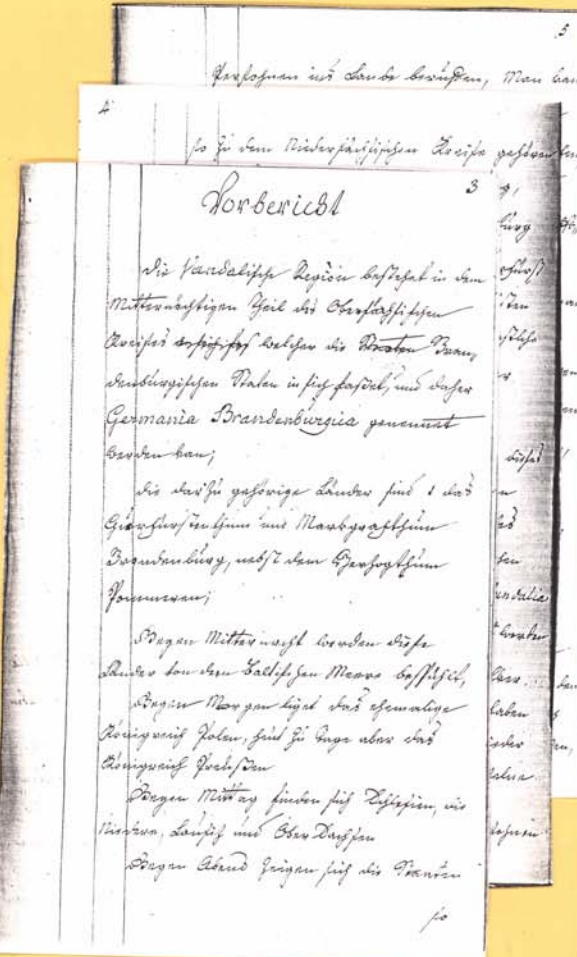 5
Persohnen ins Lande beruffen, Man
4
so zu dem Niedersächsischen Kreise gehören
3
Vorbericht
die Vandalische Region bestehet in dem
Mitternächtigen Theil des Obersächsischen
Kreises welcher die Staaten Bran,
denburgischen Staten in sich fasset, und daher
Germania Brandenburgica genennet
werden kan;
die darzu gehörige Länder sind das
Churfürstenthum und Markgrafthum
Brandenburg, nebst dem Herzogthum
Pommeren;
Gegen Mitternacht werden diese
Länder von dem Baltischen Meere bespühlt,
Gegen Morgen liget das ehemalige
Königreich Polen, heut zu Tage aber das
Königreich Preußen
Gegen Mittag finden sich Schlesien, die
Niedere, Lausitz und Ober Sachsen
Gegen Abend zeigen sich die Staaten
so
burg
dieses
andalia
werden
haben